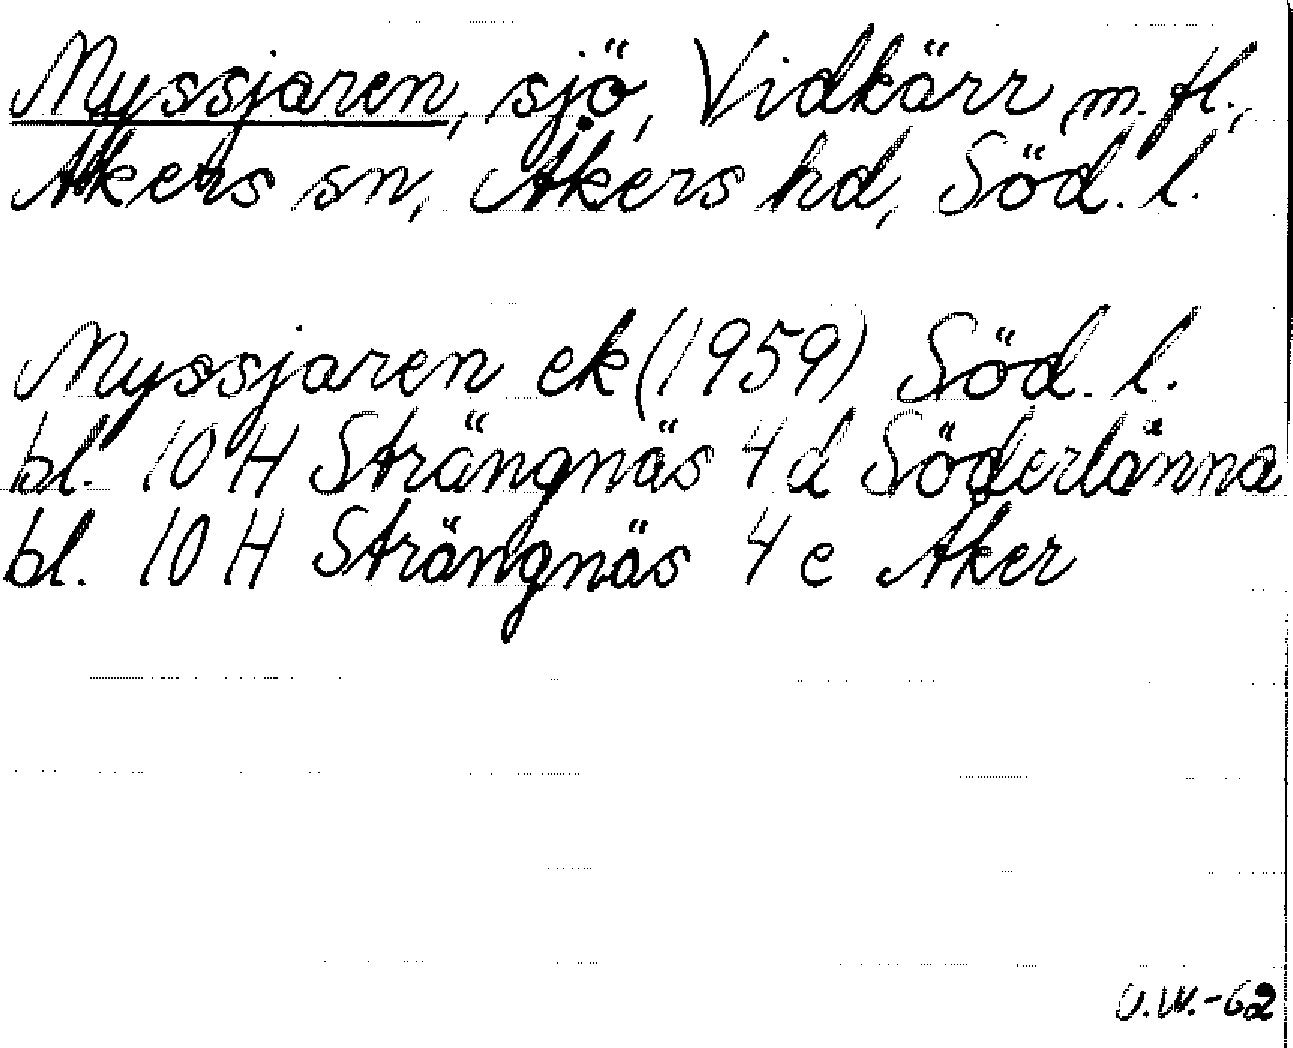 Myssjaren, sjö, Vidkärr m. fl.,
Åkers sn, Åkers hd, Söd. l.
Myssjaren ek (1959) Söd. l.
bl. 10 H Strängnäs 4 d Söderlänna
bl. 10 H Strängnäs 4 e Åker
U.W.-62